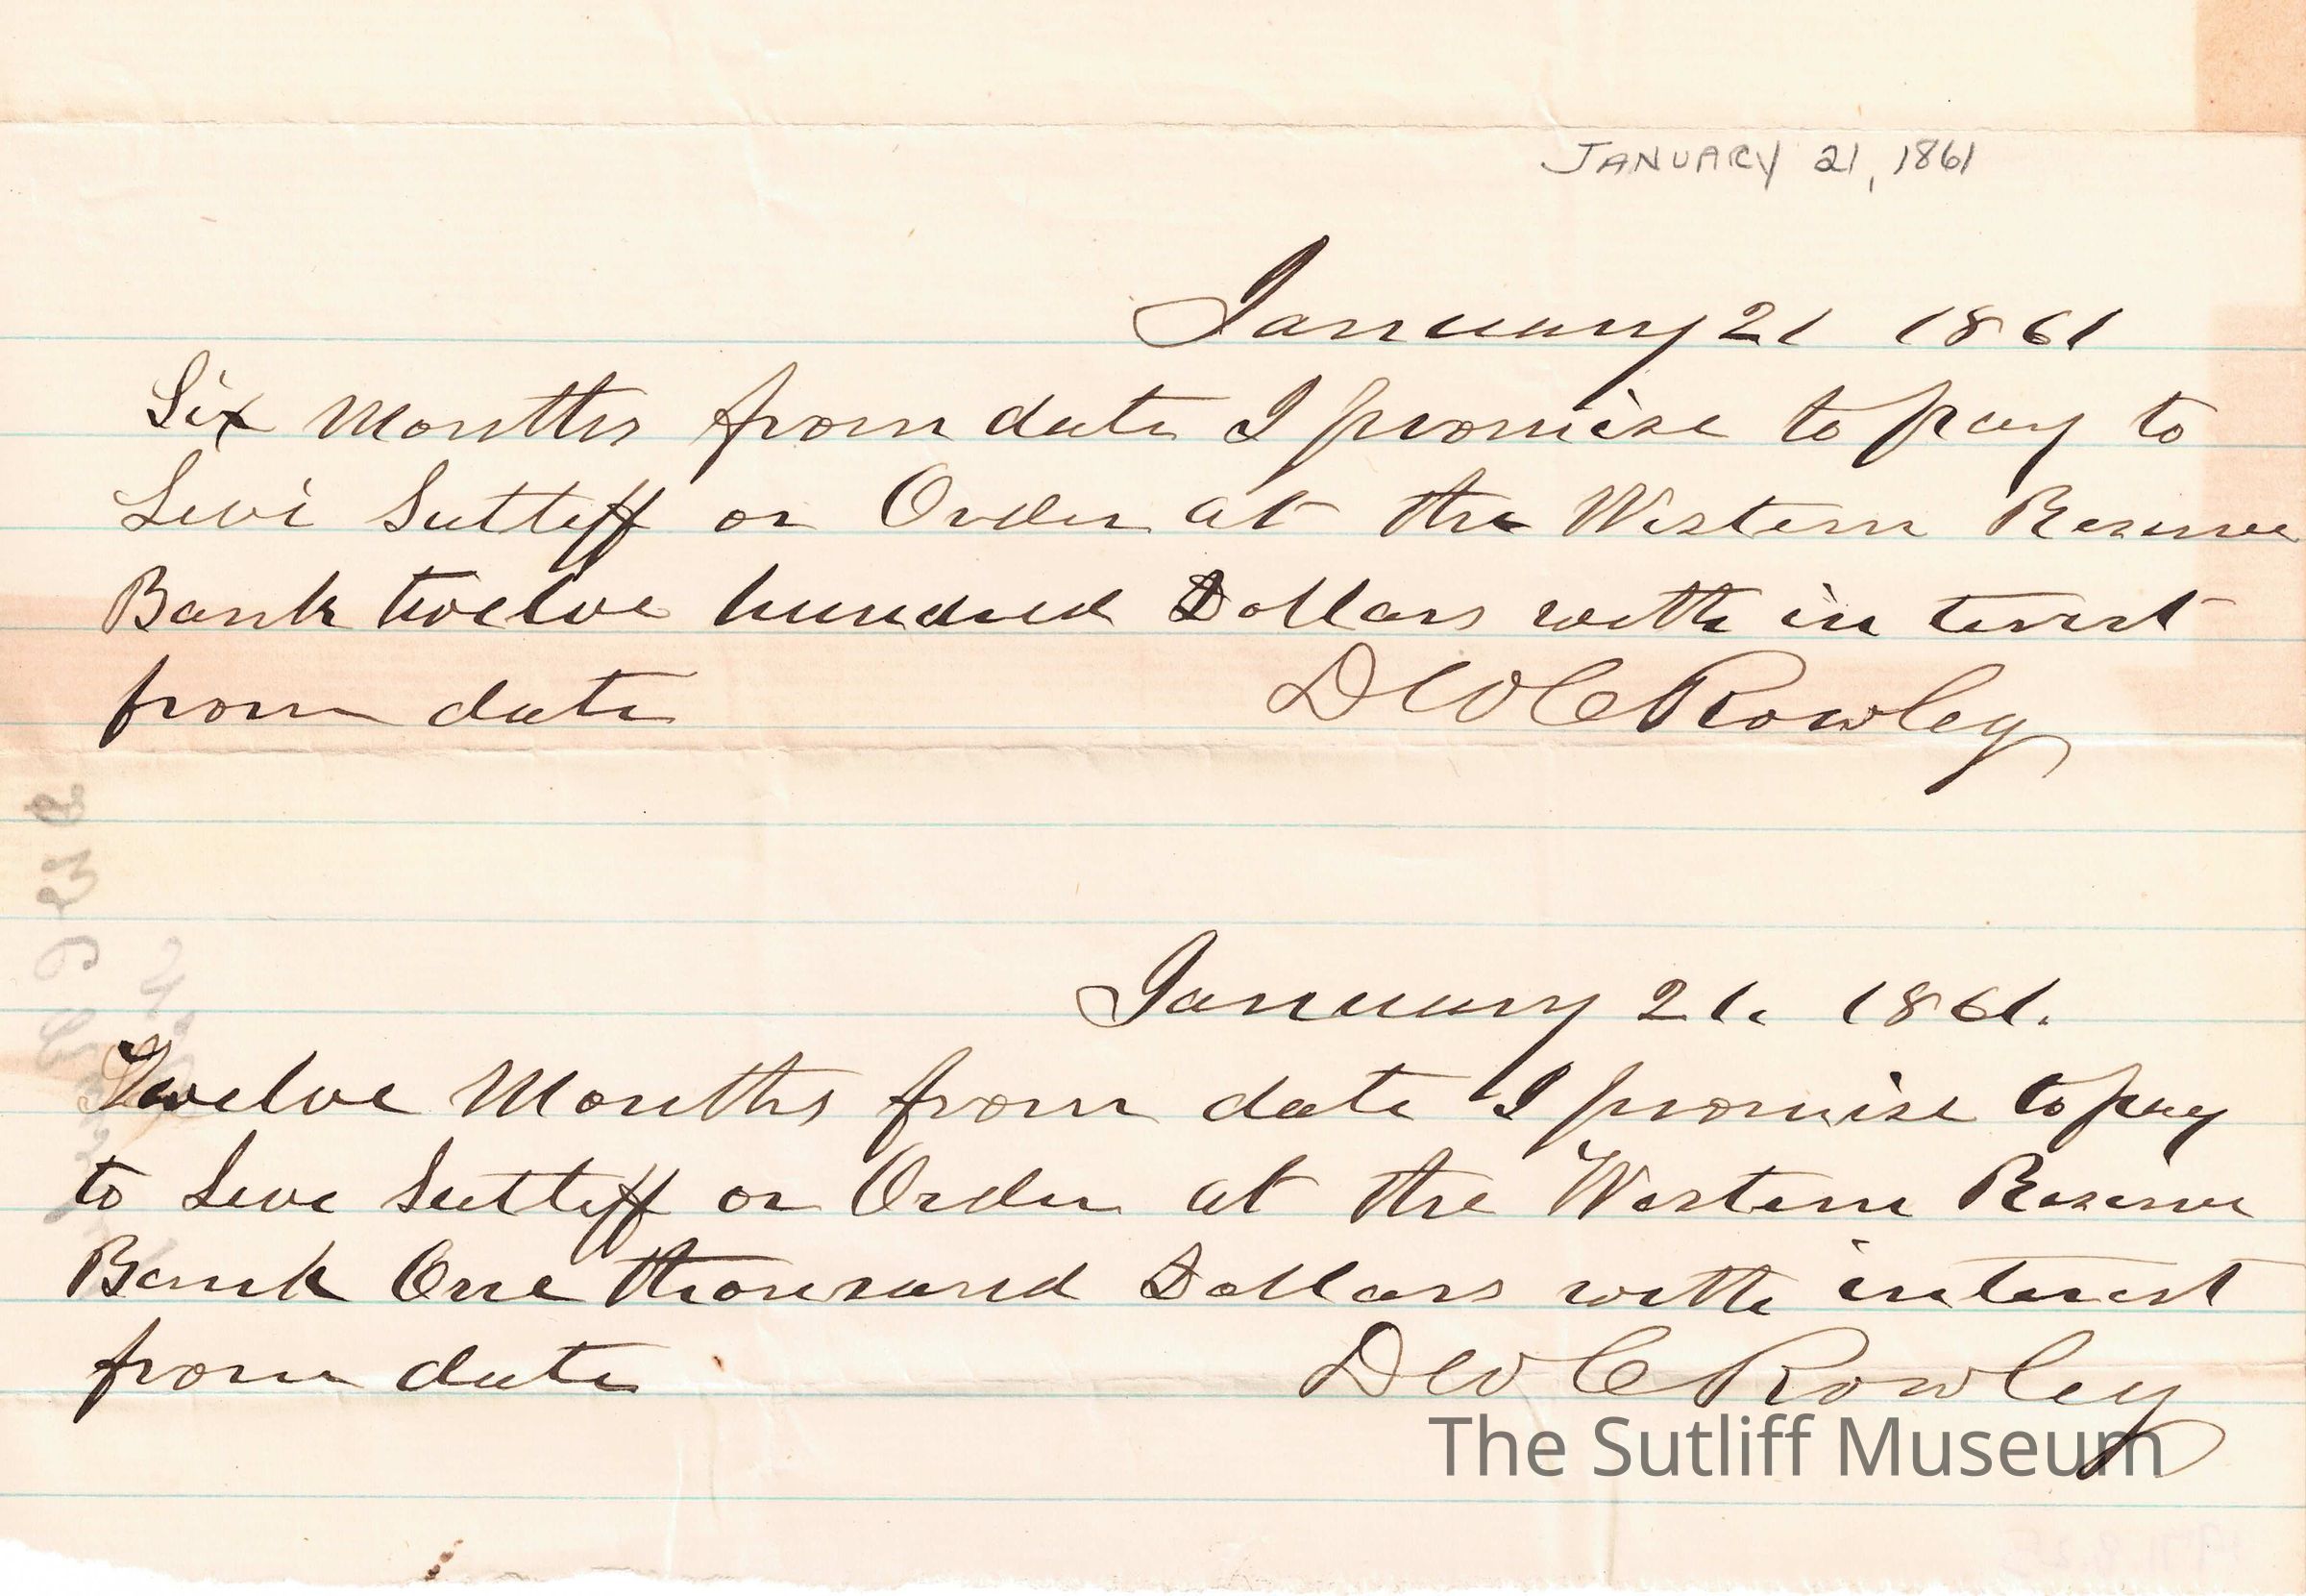 JANUARY 21, 1861
January 21 1861
Six Months from date I promise to pay to
Levi Sutliff or Order at the Western Reserve
Bank twelve hundred Dollars with in terest
from date D W C Rowley
January 21. 1861.
Twelve Months from date I promise to pay
to Levi Sutliff or Order at the Western Reserve
Bank One thousand Dollars with interest
from date D W C Rowley
The Sutliff Museum